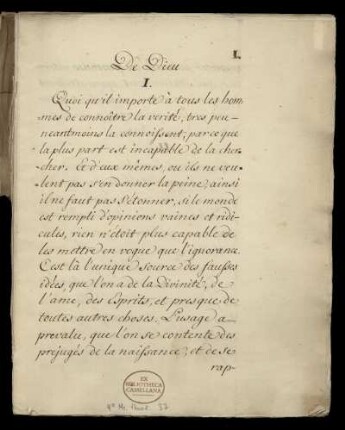 1.
De Dieu
I.
Quoi qu'il importe à tous les hom-
mes de connoître la verité, tres peu
neantmoins la connoissent, parce que
la plus part est incapable de la cher-
cher. Et d'eux mêmes, ou ils ne veu-
lent pas s'en donner la peine, ainsi
il ne faut pas s'étonner, si le monde
est rempli d'opinions vaines et ridi-
cules, rien n'étoit plus capable de
les mettre en vogue que l'ignorance.
C'est là l'unique source des fausses
idées, que l'on a de la Divinité, de
l'âme, des Esprits, et presque de
toutes autres choses. L'usage a
prevalu, que l'on se contente des
préjugés de la naissance, et de se
rap-
EX
BIBLIOTHECA
CASSELLANA
4° Ms. theol. 37